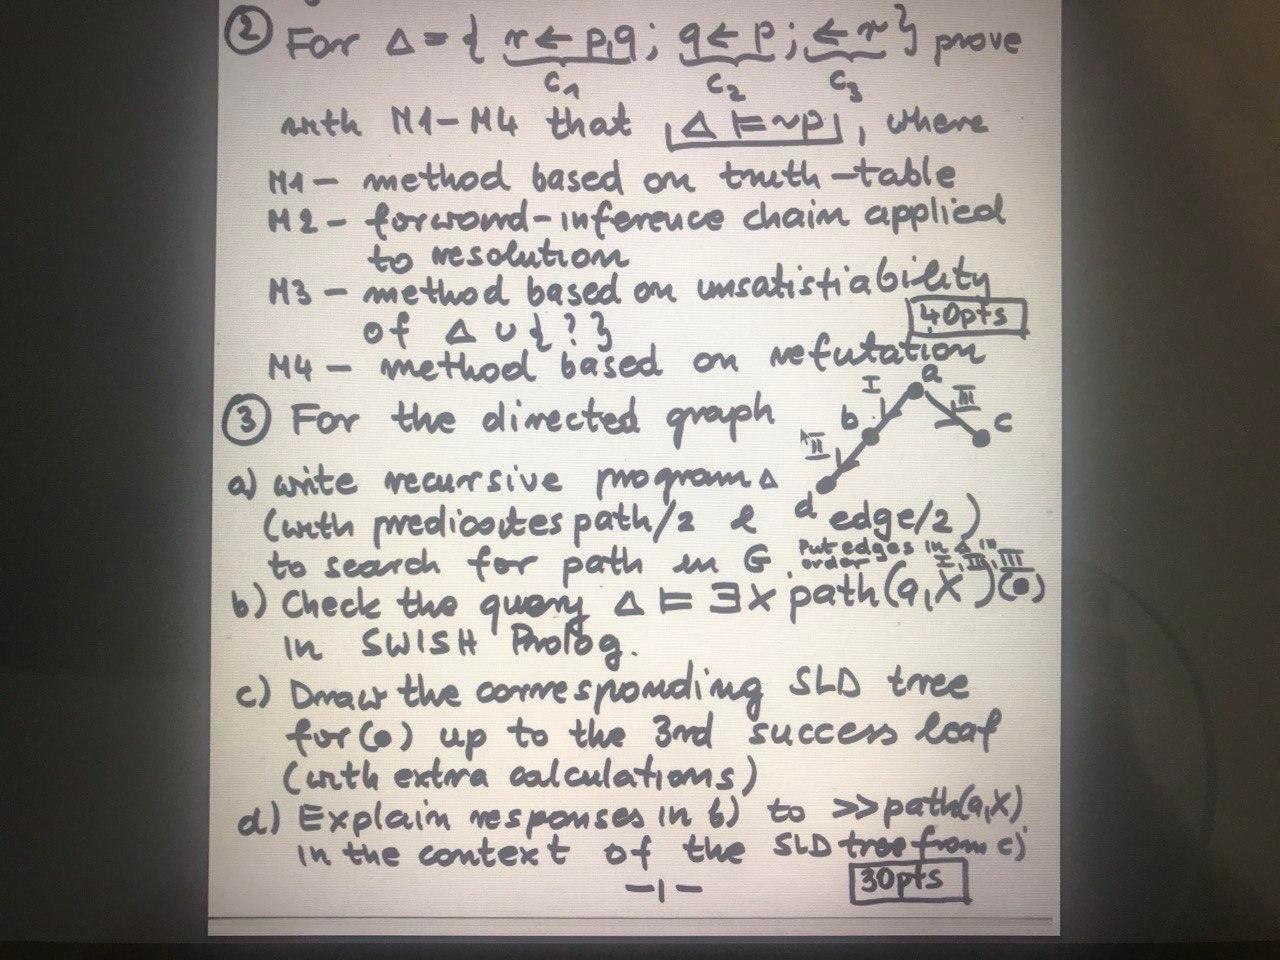 ② For Δ = { r ← p,q ; q ← p ; ← r } prove
C1 C2 C3
with M1 – M4 that Δ ⊨ ~p , where
M1 – method based on truth-table
M2 – forward-inference chain applied
to resolution
M3 – method based on unsatisfiability
of Δ ∪ { ? }
40pts
M4 – method based on refutation
③ For the directed graph
I a III b c II d
a) write recursive program Δ
(with predicates path/2 & edge/2)
to search for path in G. Put edges in Δ in
order I, II, III
b) Check the query Δ ⊨ ∃x path(a,X) (•)
in SWISH Prolog.
c) Draw the corresponding SLD tree
for (•) up to the 3rd success leaf
(with extra calculations)
d) Explain responses in b) to >> path(a,X)
in the context of the SLD tree from c)
– 1 –
30pts